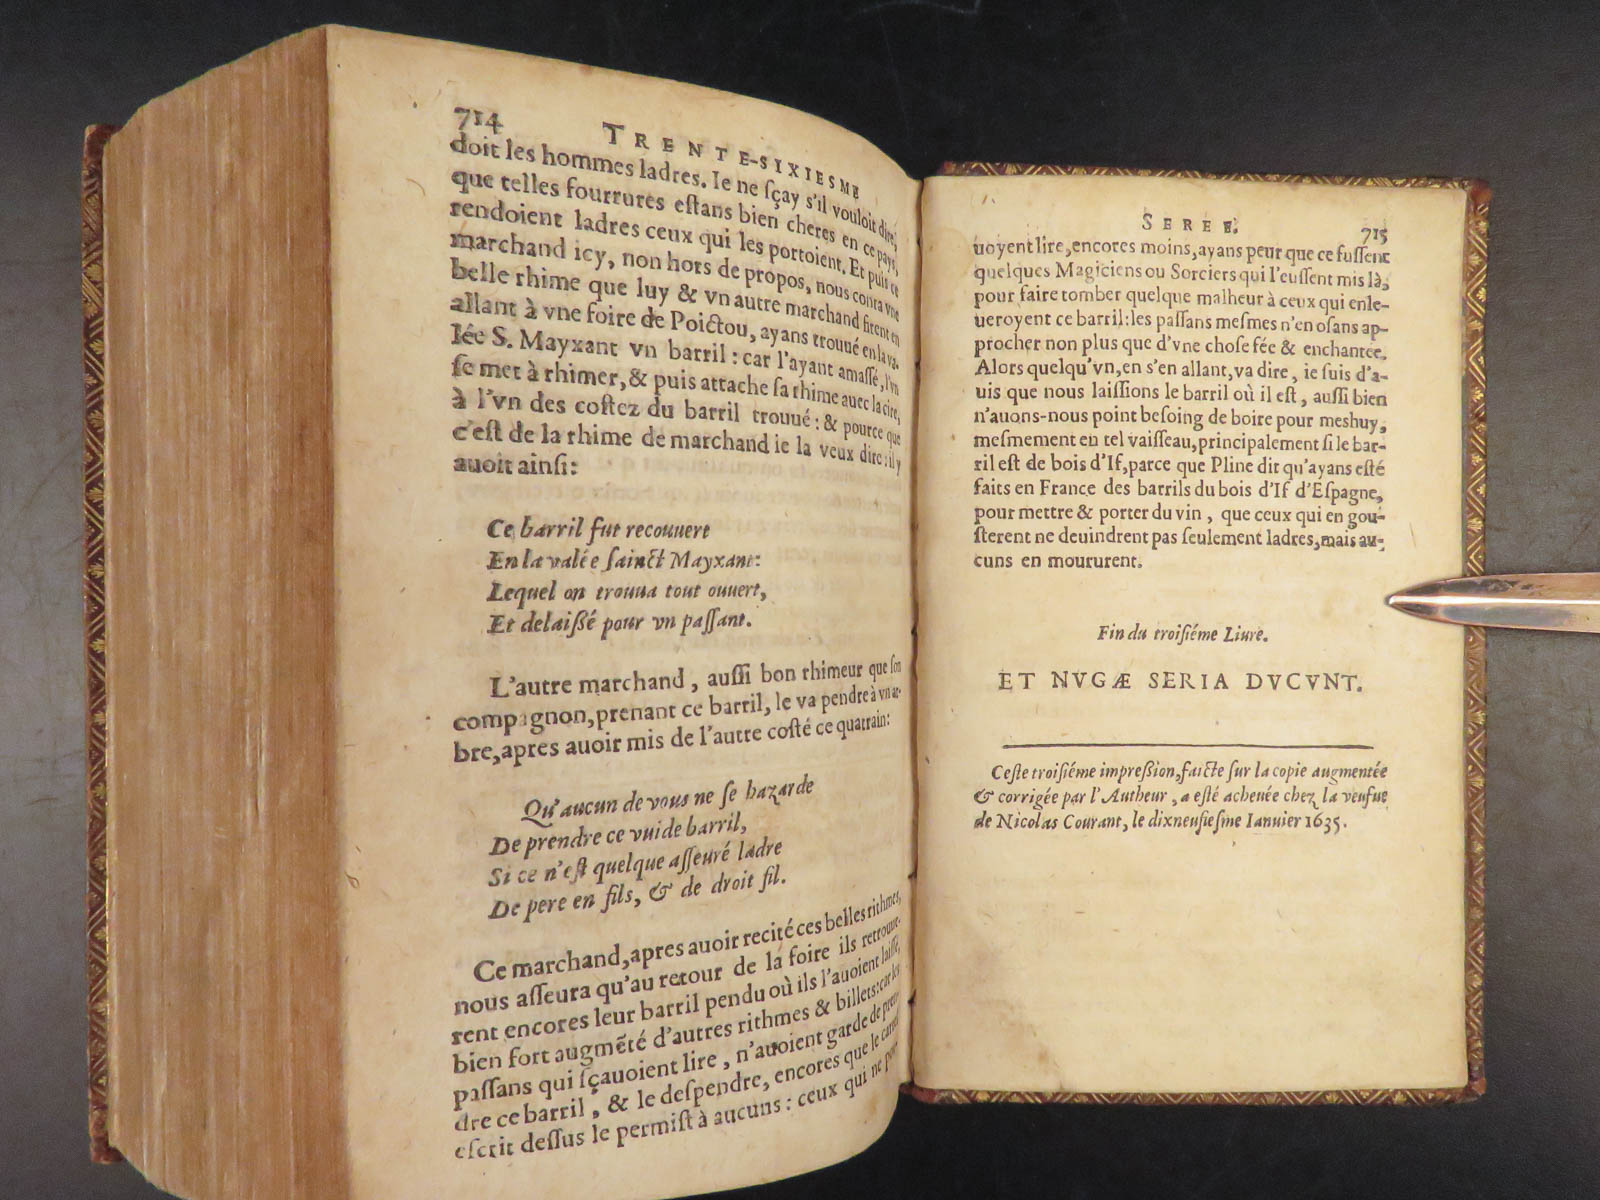 714
TRENTE-SIXIESME
doit les hommes ladres. Ie ne sçay s'il vouloit dire,
que telles fourrures estans bien cheres en ce pays,
rendoient ladres ceux qui les portoient. Et puis ce
marchand icy, non hors de propos, nous conta vne
belle rhime que luy & vn autre marchand firent en
allant à vne foire de Poictou, ayans trouué en la va-
lée S. Mayxant vn barril : car l'ayant amassé, l'vn
se met à rhimer, & puis attache sa rhime auec la cire,
à l'vn des costez du barril trouué : & pource que
c'est de la rhime de marchand ie la veux dire : il y
auoit ainsi :
Ce barril fut recouuert
En la valée sainct Mayxant:
Lequel on trouua tout ouuert,
Et delaißé pour vn passant.
L'autre marchand, aussi bon rhimeur que son
compagnon, prenant ce barril, le va pendre à vn ar-
bre, apres auoir mis de l'autre costé ce quatrain:
Qu'aucun de vous ne se hazarde
De prendre ce vuide barril,
Si ce n'est quelque asseuré ladre
De pere en fils, & de droit fil.
Ce marchand, apres auoir recité ces belles rithmes,
nous asseura qu'au retour de la foire ils retrouue-
rent encores leur barril pendu où ils l'auoient laissé,
bien fort augmẽté d'autres rithmes & billets: car les
passans qui sçauoient lire, n'auoient garde de pren-
dre ce barril, & le despendre, encores que le carrel
escrit dessus le permist à aucuns : ceux qui ne pou-
SEREE.
715
uoyent lire, encores moins, ayans peur que ce fussent
quelques Magiciens ou Sorciers qui l'eussent mis là,
pour faire tomber quelque malheur à ceux qui enle-
ueroyent ce barril: les passans mesmes n'en osans ap-
procher non plus que d'vne chose fée & enchantée.
Alors quelqu'vn, en s'en allant, va dire, ie suis d'a-
uis que nous laissions le barril où il est, aussi bien
n'auons-nous point besoing de boire pour meshuy,
mesmement en tel vaisseau, principalement si le bar-
ril est de bois d'If, parce que Pline dit qu'ayans esté
faits en France des barrils du bois d'If d'Espagne,
pour mettre & porter du vin, que ceux qui en gou-
sterent ne deuindrent pas seulement ladres, mais au-
cuns en moururent.
Fin du troisiéme Liure.
ET NVGÆ SERIA DVCVNT.
Ceste troisiéme impreßion, faicte sur la copie augmentée
& corrigée par l'Autheur, a esté acheuée chez la veufue
de Nicolas Courant, le dixneufiesme Ianuier 1635.